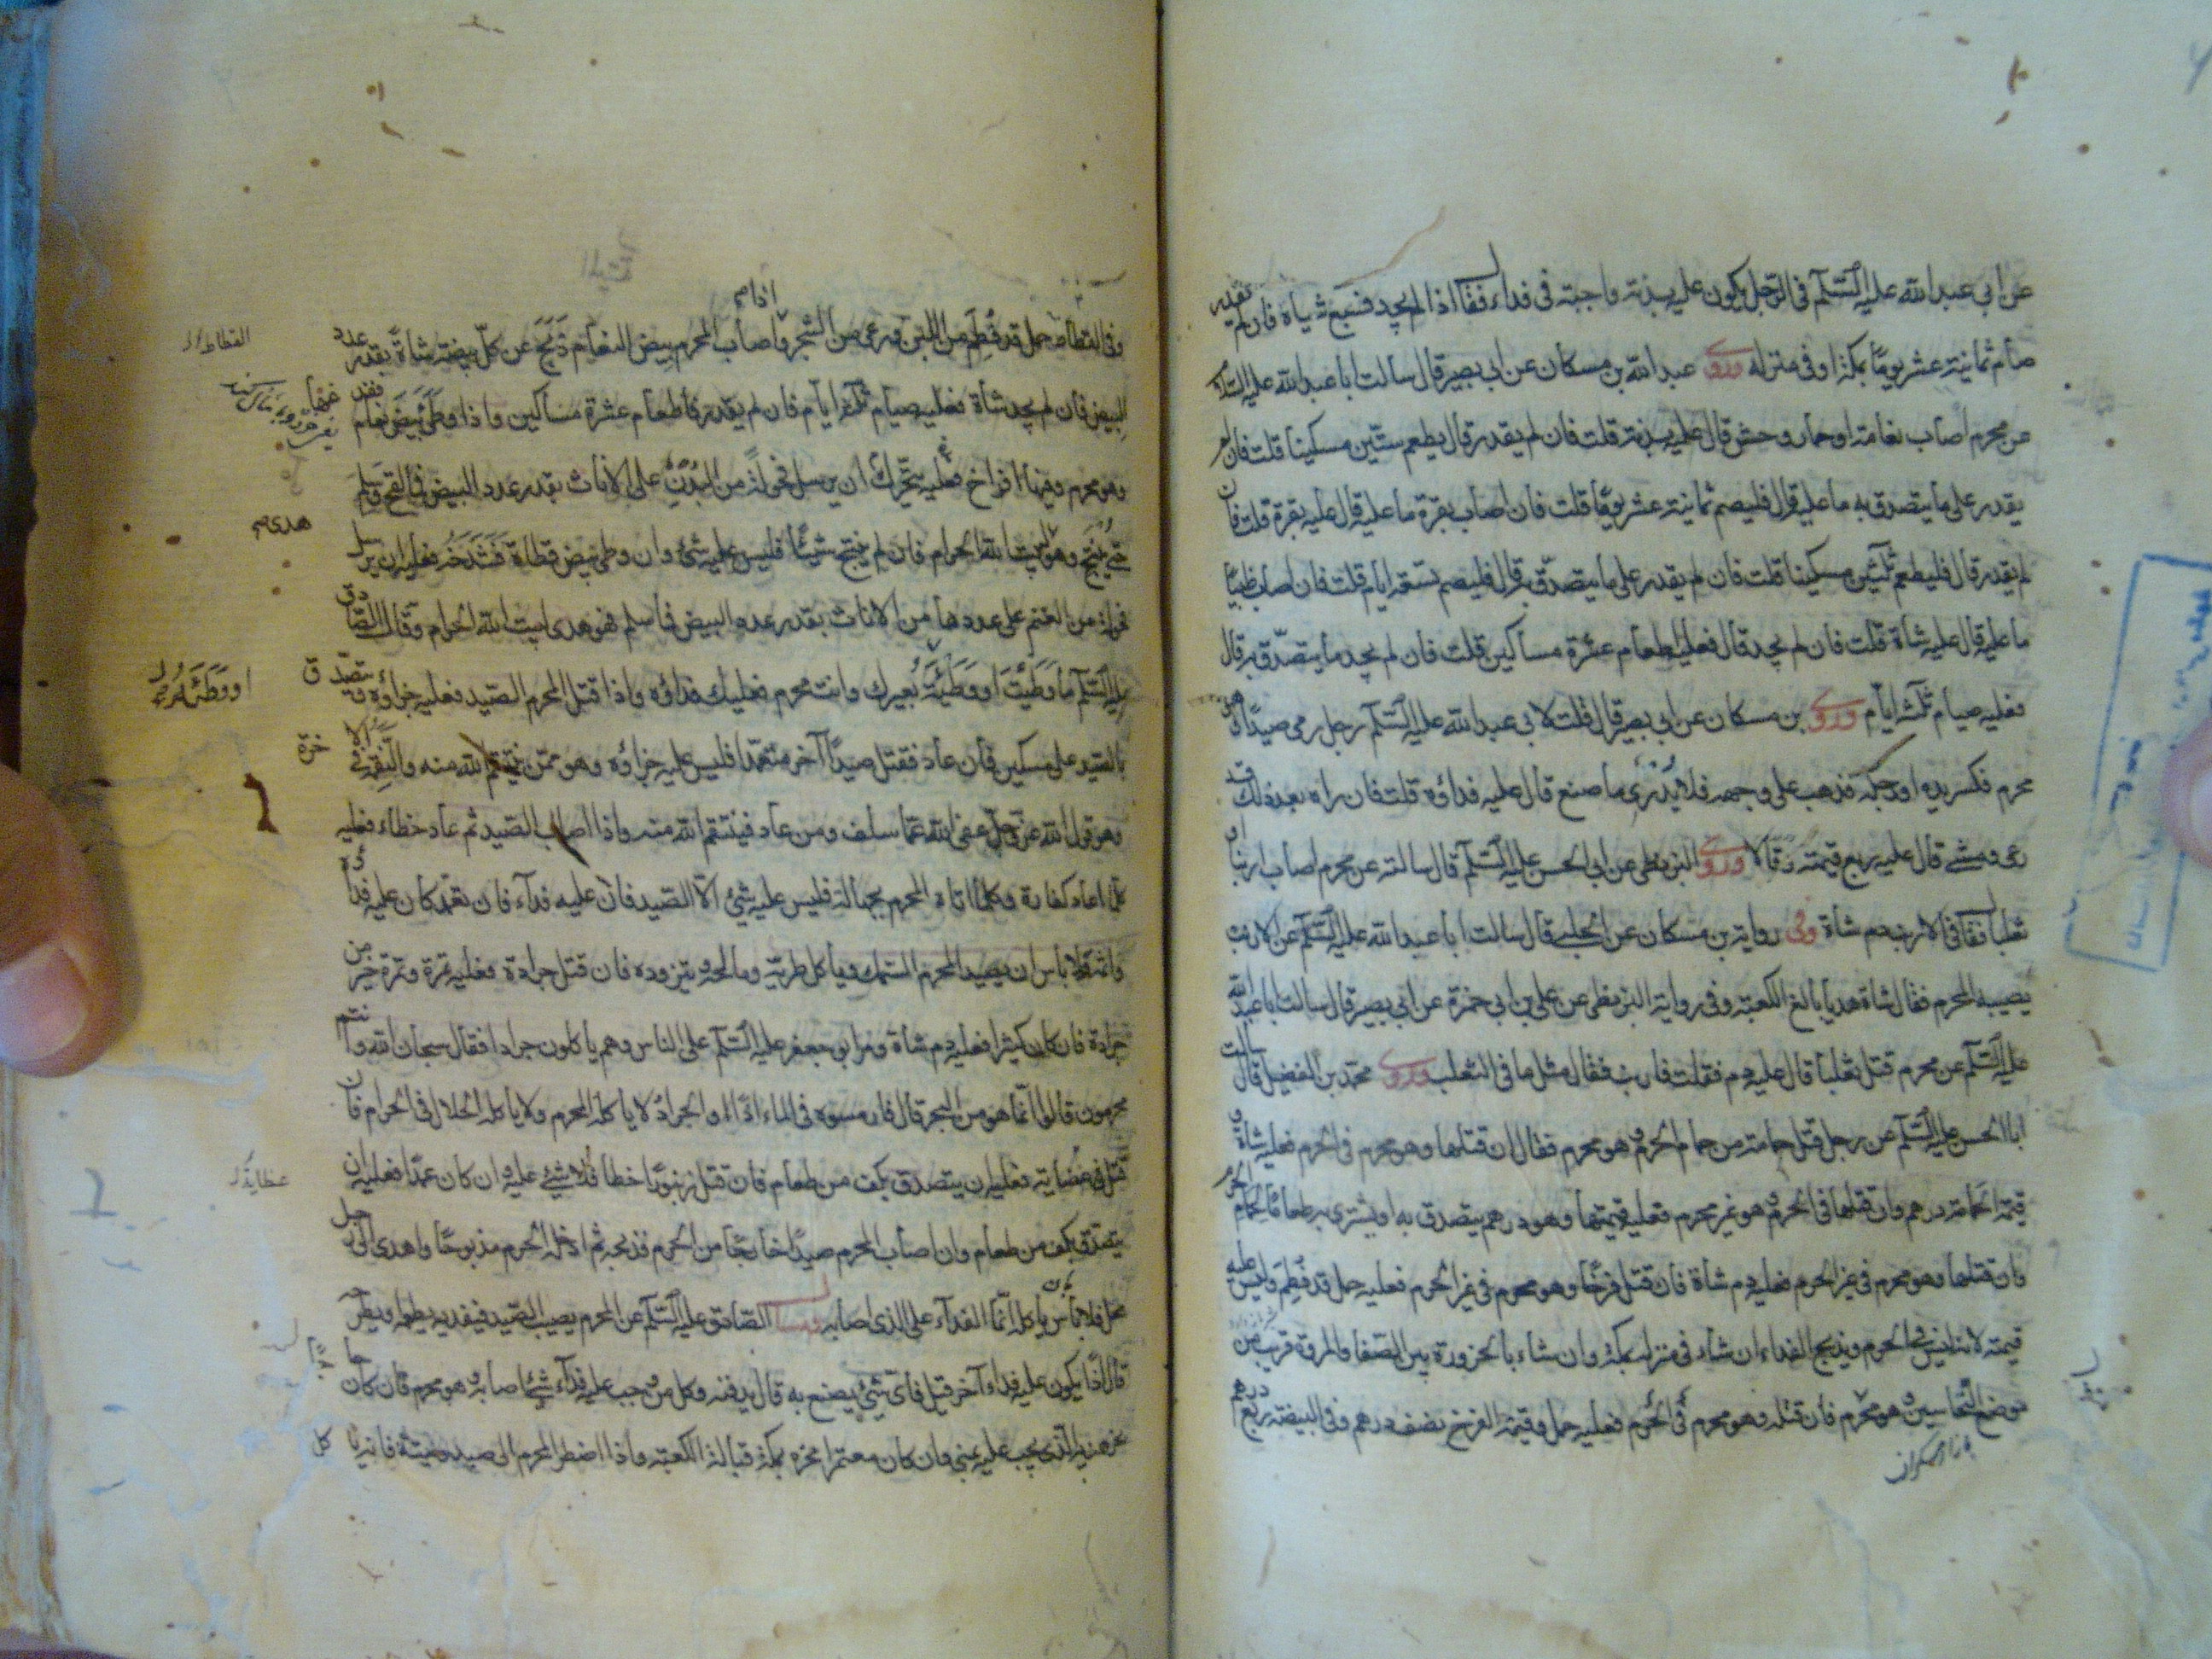 عن ابي عبد الله عليه السلام في الرجل يكون عليه بدنة واجبة في فداء فقال اذا لم يجد فسبع شياة فان لم يقدر
صام ثمانية عشر يوما بمكة او في منزله وروى عبد الله بن مسكان عن ابي بصير قال سالت ابا عبد الله عليه السلام
عن محرم اصاب نعامة او حمار وحش قال عليه بدنة قلت فان لم يقدر قال يطعم ستين مسكينا قلت فان لم
يقدر على ما يتصدق به ما عليه قال فليصم ثمانية عشر يوما قلت فان اصاب بقرة ما عليه قال عليه بقرة قلت فان
لم يقدر قال فليطعم ثلثين مسكينا قلت فان لم يقدر على ما يتصدق به قال فليصم تسعة ايام قلت فان اصاب ظبيا
ما عليه قال عليه شاة قلت فان لم يجد قال فعليه اطعام عشرة مساكين قلت فان لم يجد ما يتصدق به قال
فعليه صيام ثلثة ايام وروى بن مسكان عن ابي بصير قال قلت لابي عبد الله عليه السلام رجل رمى صيدا وهو
محرم فكسر يده او رجله فذهب على وجهه فلا يدرى ما صنع قال عليه فداؤه قلت فان راه بعد ذلك قد
رعى ومشى قال عليه ربع قيمته وروى البزنطي عن ابي الحسن عليه السلام قال سالته عن محرم اصاب ارنبا او
ثعلبا فقال في الارنب دم شاة وفي رواية بن مسكان عن الحلبي قال سالت ابا عبد الله عليه السلام عن الارنب
يصيبه المحرم فقال شاة هديا بالغ الكعبة وفي رواية البزنطي عن علي بن ابي حمزة عن ابي بصير قال سالت ابا عبد الله
عليه السلام عن محرم قتل ثعلبا قال عليه دم فقلت فارنب فقال مثل ما في الثعلب وروى محمد بن الفضيل قال سالت
ابا الحسن عليه السلام عن رجل قتل حمامة من حمام الحرم وهو محرم فقال ان قتلها وهو محرم في الحرم فعليه شاة و
قيمة الحمامة درهم وان قتلها في الحرم وهو غير محرم فعليه قيمتها وهو درهم يتصدق به او يشترى به طعاما لحمام الحرم
وان قتلها وهو محرم في غير الحرم فعليه دم شاة فان قتل فرخا وهو محرم في غير الحرم فعليه حمل قد فطم وليس عليه
قيمته لانه ليس في الحرم ويذبح الفداء ان شاء في منزله بمكة وان شاء بالحزورة بين الصفا والمروة قريب من
موضع النخاسين وهو محرم فان قتله وهو محرم في الحرم فعليه حمل وقيمة الفرخ نصف درهم وفي البيضة ربع درهم
وفي القطاة حمل قد فطم من اللبن ورعى من الشجر واذا اصاب المحرم بيض النعام ذبح عن كل بيضة شاة بقدر عدد
البيض فان لم يجد شاة فعليه صيام ثلثة ايام فان لم يقدر فاطعام عشرة مساكين واذا وطئ بيض نعام
وهو محرم وفيها افراخ تتحرك فعليه ان يرسل فحولة من البدن على الاناث بقدر عدد البيض فما لقح وسلم
حتى ينتج فهو هدي لبيت الله الحرام فان لم ينتج شيئا فليس عليه شئ وان وطئ بيض قطاة فشدخه فعليه ان يرسل
فحولة من الغنم على عددها من الاناث بقدر عدد البيض فما سلم فهو هدى لبيت الله الحرام وقال الصادق
عليه السلم ما وطئت او وطئه بعيرك وانت محرم فعليك فداؤه واذا قتل المحرم الصيد فعليه جزاؤه ويتصدق
بالصيد على مسكين فان عاد فقتل صيدا آخر متعمدا فليس عليه جزاؤه وهو ممن ينتقم الله منه والنقمة في الاخرة
وهو قول الله عز وجل عفى الله عما سلف ومن عاد فينتقم الله منه واذا اصاب الصيد ثم عاد خطاء فعليه
كلما عاد كفارة وكلما اتاه المحرم بجهالة فليس عليه شئ الا الصيد فان عليه فداء فان تعمد كان عليه فداؤه
واثمه ولا باس ان يصيد المحرم السمك وياكل طريه ومالحه ويتزوده فان قتل جرادة فعليه تمرة وتمرة خير من
جرادة فان كان كثيرا فعليه دم شاة ومر ابو جعفر عليه السلم على الناس وهم ياكلون جرادا فقال سبحان الله وانتم
محرمون قالوا انما هو من البحر قال فارمسوه في الماء اذا والجراد لا ياكله المحرم ولا ياكله الحلال في الحرم فان
قتل عظاية فعليه ان يتصدق بكف من طعام فان قتل زنبورا خطا فلا شئ عليه وان كان عمدا فعليه ان
يتصدق بكف من طعام وان اصاب المحرم صيدا خارجا من الحرم فذبحه ثم ادخله الحرم مذبوحا واهدى الى رجل
محل فلا باس ان ياكله انما الفداء على الذى اصابه وسال الصادق عليه السلم عن المحرم يصيب الصيد فيفديه يطعمه او يطرحه
قال اذا يكون عليه فداء آخر قيل فاى شئ يصنع به قال يدفنه وكل من وجب عليه فداء شئ اصابه وهو محرم فان كان حاجا
نحر هديه الذى يجب عليه بمنى وان كان معتمرا نحره بمكة قبالة الكعبة واذا اضطر المحرم الى صيد وميتة فانه ياكل